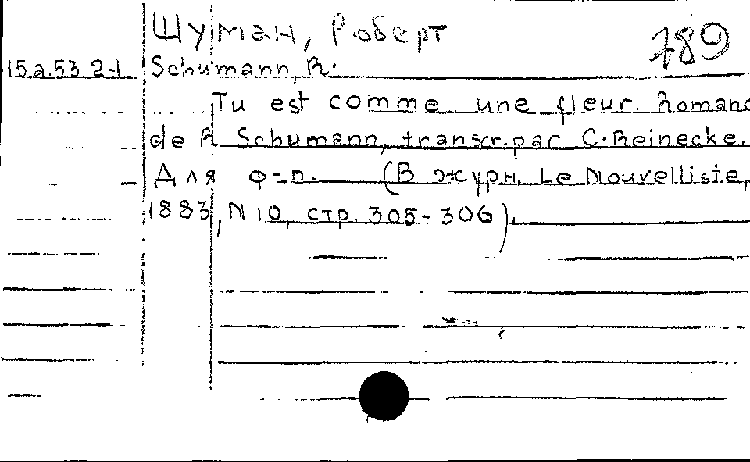 Шуман, Роберт
789
15.a.53 2-1 Schumann, R.
Tu est comme une fleur. Romanc
de R. Schumann, transcr. par C. Reinecke.
Для ф-п. (В журн. Le Nouvelliste,
1883, N 10, стр. 305-306).